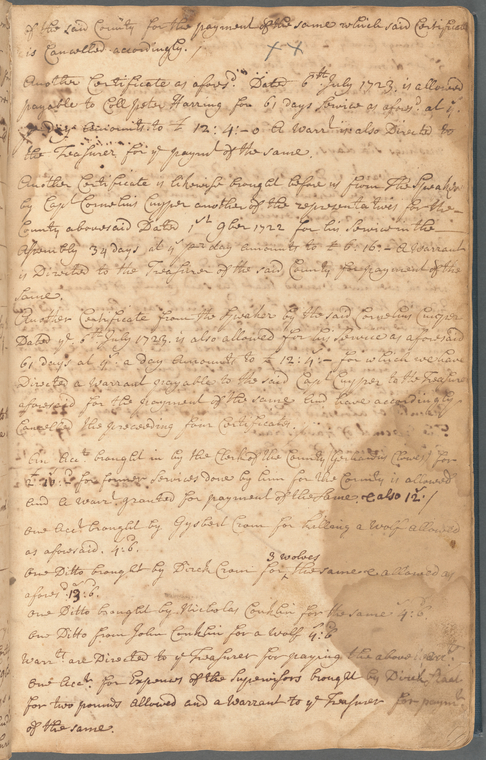 of the said County for the payment of the same which said Certificate
is Cancelled accordingly. /
Another Certificate as afores.d Dated 6th July 1723, is allowed
payable to Coll Peter Harring for 61 days Service as afores.d at 4.
day Amounts to £ 12: 4:-0 A Warr.t is also Directed to
the Treasurer for ye paymt of the same
Another Certificate is likewise brought before us from The Speaker
by Capt Cornelius Cuyper another of the representatives for the
County abovesaid Dated 1st 9ber 1722 for his Service in the
Assembly 34 days at 4s per day amounts to £ 6: 16:- A Warrant
is Directed to the Treasurer of the said County for payment of the
same.
Another Certificate from the Speaker by the said Cornelius Cuyper
Dated ye 6th July 1723. is also allowed for his Service as aforesaid
61 days at 4s: a day Amounts to £ 12:4:- for which we have
Directed a Warrant payable to the said Capt Cuyper to the Treasurer
aforesaid for the payment of the same And have accordingly
Cancelled the preceeding four Certificates.
An Acct brought in by the Clerk of the County for
for former Services done by him for the County is allowed
and a Warrt granted for payment of the same also 12:/
One Acct brought by Gysbert Crom for killing a Wolf allowed
as aforesaid. 4:6.
3 wolves
One Ditto brought by Direk Crom for the same allowed as
afores.d 13:6.
One Ditto brought by Nicholas Conklin for the same 4:6
One Ditto from John Conklin for a Wolf 4:6
Warrts are Directed to ye Treasurer for paying the above
One Acct. for Expenses of the Supervisors brought by Direk
for two pounds Allowed and a Warrant to ye Treasurer for paymt
of the same.